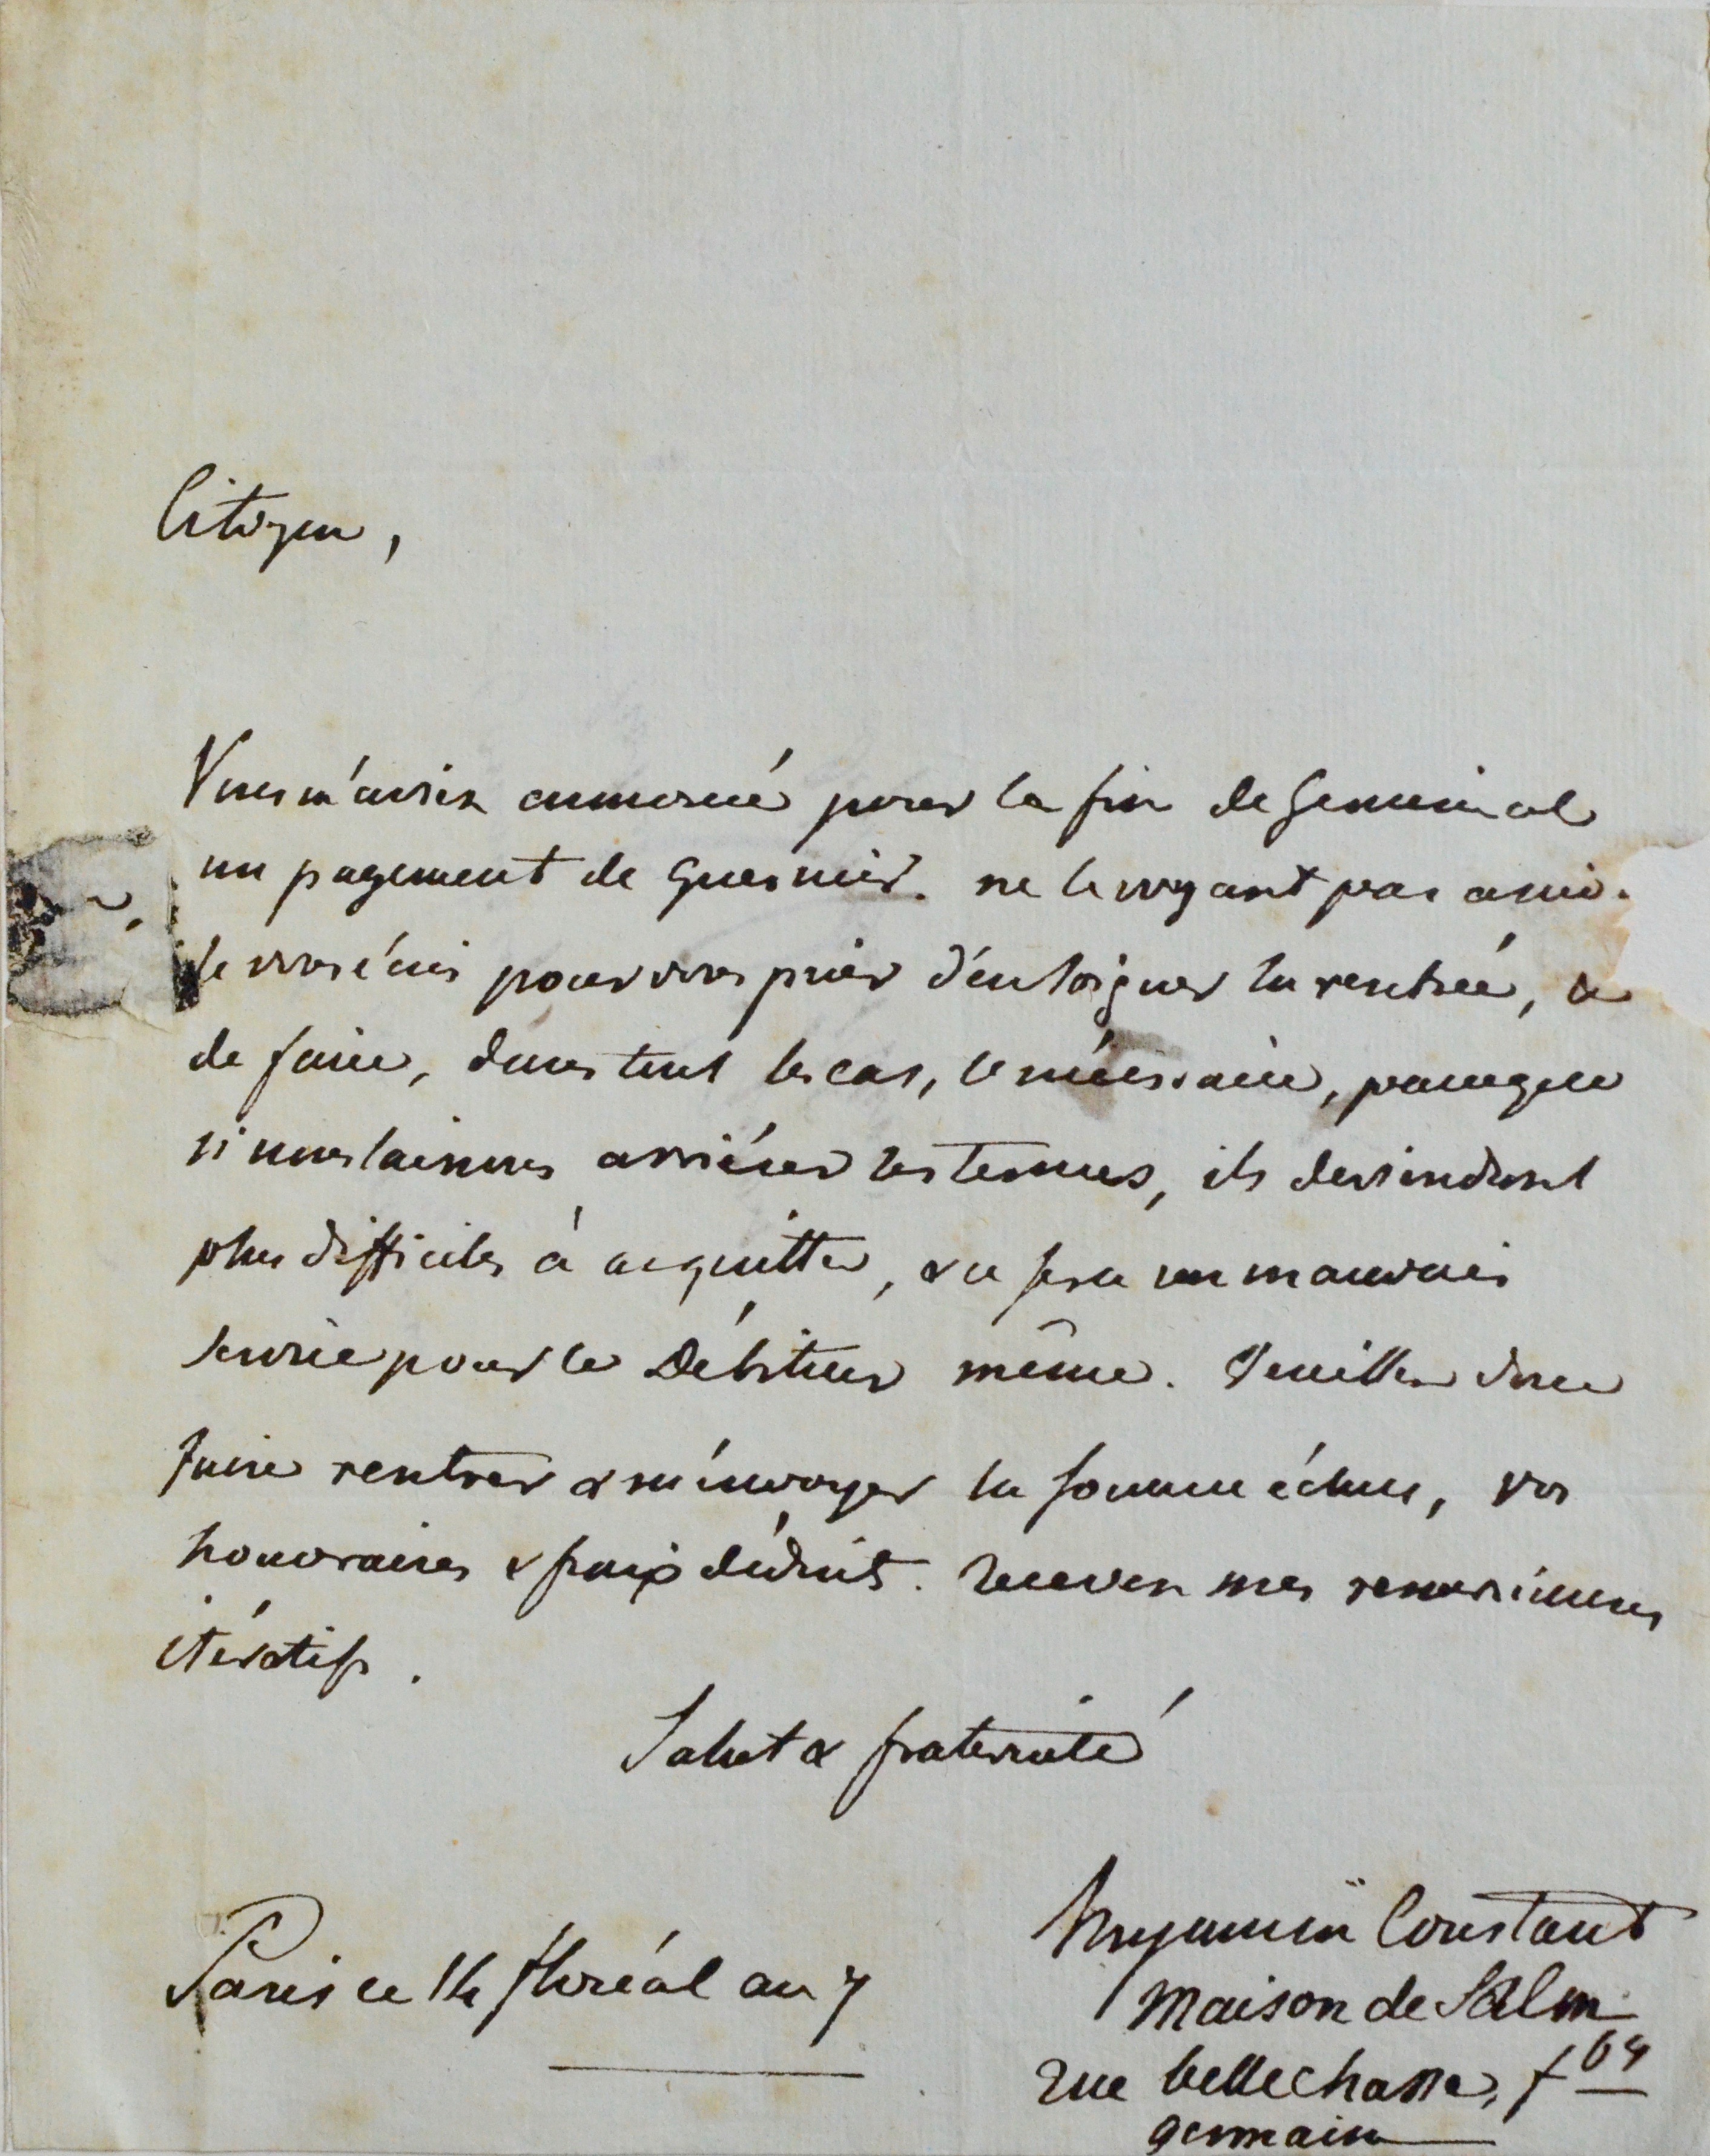 Citoyen,
Vous m'aviez annoncé pour la fin de Germinal
un payement de Guesnier. ne le voyant pas arriv.
Je vous écris pour vous prier d'en soigner la rentrée, &
de faire, dans tous les cas, le nécessaire, parceque
si nous laissons arriérer les termes, ils deviendront
plus difficiles à acquitter, & ce sera un mauvais
service pour le Débiteur même. Veuillez donc
faire rentrer & m'envoyer la somme échue, vos
honoraires & fraix déduits. Recevez mes remercimens
itératifs.
Salut & fraternité
Benjamin Constant
Paris ce 14 floréal an 7
Maison de Salm
rue bellechasse, f bg
germain